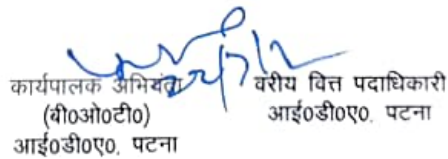 कार्यपालक अभियंता
(बी०ओ०टी०)
आई०डी०ए०, पटना
वरीय वित्त पदाधिकारी
आई०डी०ए०, पटना